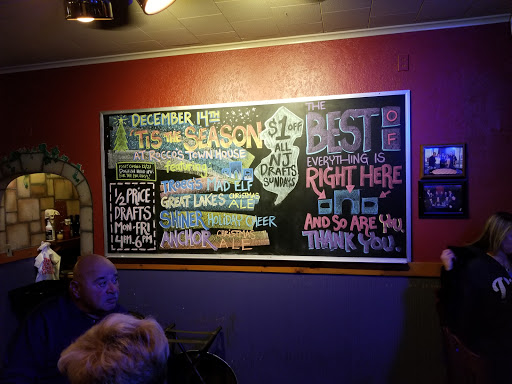 DECEMBER 14TH
'TIS THE SEASON
AT ROCCO'S TOWN HOUSE
featuring
TROEGS MAD ELF
GREAT LAKES CHRISTMAS ALE
SHINER HOLIDAY CHEER
ANCHOR CHRISTMAS ALE
1/2 PRICE
DRAFTS
MON-FRI
4PM-6PM
$1 OFF
ALL
NJ
DRAFTS
SUNDAYS
THE
BEST
OF
EVERYTHING IS
RIGHT HERE
AND SO ARE YOU.
THANK YOU.